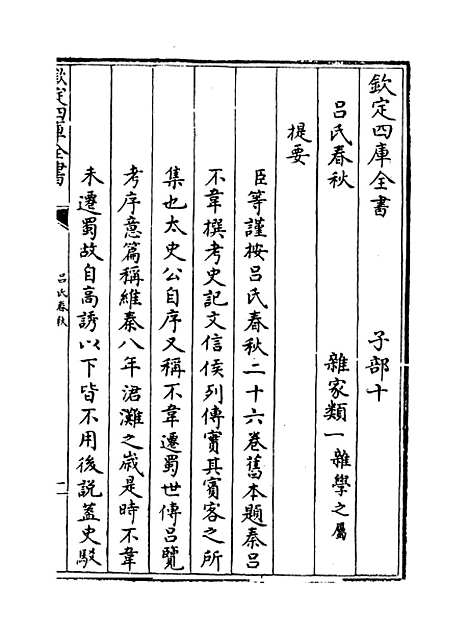 欽定四庫全書　子部十
呂氏春秋　雜家類一雜學之屬
提要
臣等謹按呂氏春秋二十六卷舊本題秦呂
不韋撰考史記文信侯列傳實其賓客之所
集也太史公自序又稱不韋遷蜀世傳呂覽
考序意篇稱維秦八年涒灘之歲是時不韋
未遷蜀故自高誘以下皆不用後說蓋史駁
欽定四庫全書
呂氏春秋